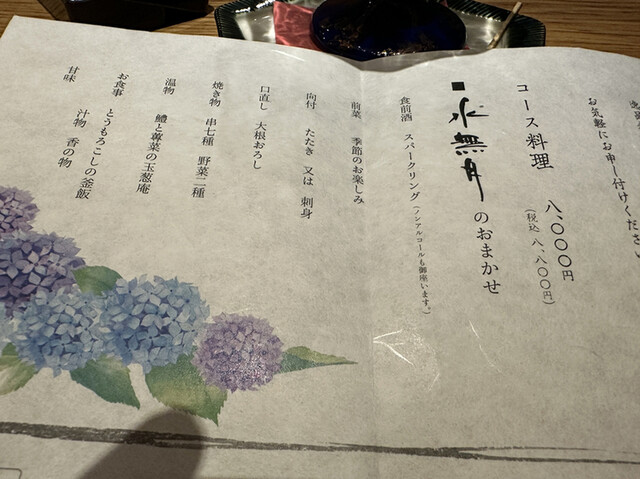 お気軽にお申し付けください
コース料理 八、〇〇〇円
(税込 八、八〇〇円)
■水無月のおまかせ
食前酒 スパークリング(ノンアルコールも御座います。)
前菜 季節のお楽しみ
向付 たたき 又は 刺身
口直し 大根おろし
焼き物 串七種 野菜二種
温物 鱧と蓴菜の玉葱庵
お食事 とうもろこしの釜飯
汁物 香の物
甘味